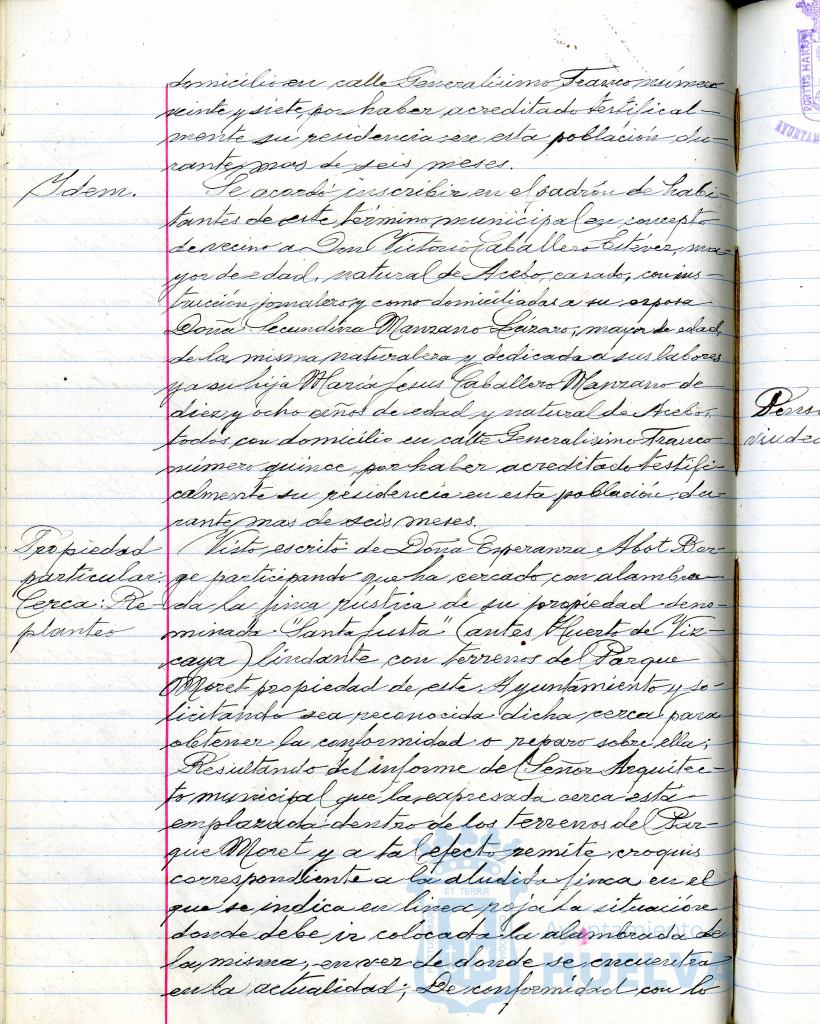 domicilio en calle Generalísimo Franco número
veinte y siete, por haber acreditado testifical-
mente su residencia en esta población, du-
rante mas de seis meses.
Idem.
Se acordó inscribir en el padrón de habi-
tantes de este término municipal en concepto
de vecino a Don Victorio Caballero Estévez, ma-
yor de edad, natural de Acebo, casado, con ins-
trucción, jornalero, y como domiciliadas a su esposa
Doña Secundina Manzano Lázaro, mayor de edad,
de la misma naturaleza y dedicada a sus labores
y a su hija María Jesus Caballero Manzano de
diez y ocho años de edad y natural de Acebo,
todos con domicilio en calle Generalísimo Franco
número quince, por haber acreditado testifi-
calmente su residencia en esta población, du-
rante mas de seis meses.
Propiedad
particular.
Cerca: Re-
planteo
Visto escrito de Doña Esperanza Abot Bor-
ge participando que ha cercado con alambra-
da la finca rústica de su propiedad deno-
minada "Santa Justa" (antes Huerto de Viz-
caya) lindante con terrenos del Parque
Moret propiedad de este Ayuntamiento y so-
licitando sea reconocida dicha cerca para
obtener la conformidad o reparo sobre ella;
Resultando del informe del Señor Arquitec-
to municipal que la expresada cerca está
emplazada dentro de los terrenos del Par-
que Moret y a tal efecto remite croquis
correspondiente a la aludida finca en el
que se indica en linea roja la situación
donde debe ir colocada la alambrada de
la misma, en vez de donde se encuentra
en la actualidad; De conformidad con lo
PORTUS MARIS
ET TERRAE
Ayuntamiento
HUELVA